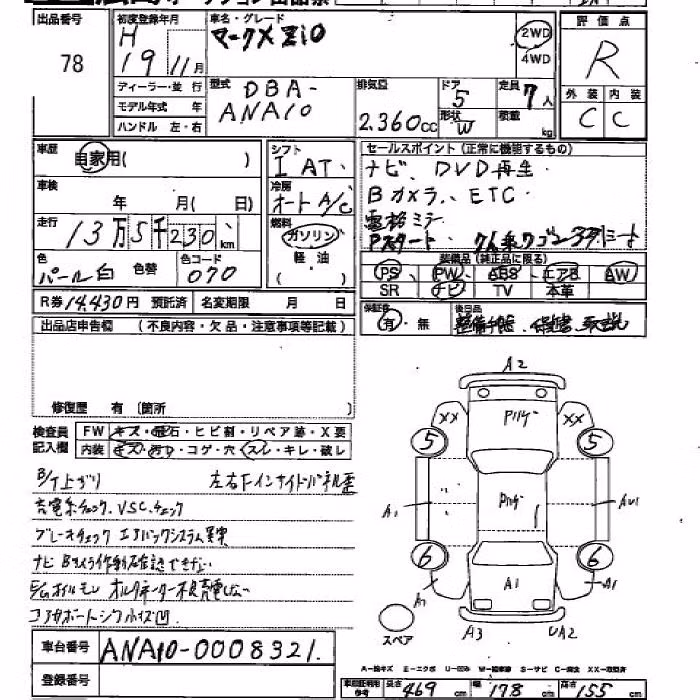 出品番号
78
初度登録年月
H
19 11月
ディーラー・並行
モデル年式 年
ハンドル 左・右
車名・グレード
マークX ZiO
2WD
4WD
型式
DBA-
ANA10
排気量
2.360cc
ドア
5
形状
W
定員
7人
積載
kg
評価点
R
外装 内装
C C
車歴
自家用( )
車検
年 月( 日)
走行
13万5千230km
色
パール白
色替
色コード
070
シフト
I AT
冷房
オートA/C
燃料
ガソリン
軽・油
( )
セールスポイント(正常に機能するもの)
ナビ、DVD再生
Bカメラ、ETC
電格ミラー
Pスタート、7人乗ワゴン3列シート
装備品(純正品に限る)
PS PW ABS エアB AW
SR ナビ TV 本革
R券 14,430円 預託済 名変期限 月 日
保証書
有・無
後日品
整備手帳、保証書、取説
出品店申告欄 (不良内容・欠品・注意事項等記載)
修復歴 有 〔箇所 〕
検査員
記入欄
FW キズ・飛石・ヒビ割・リペア跡・X要
内装 キズ・汚れ・コゲ・穴・スレ・キレ・破レ
B/T上ガリ 左右Fインサイドパネル歪
充電系チェック、VSC、チェック
ブレーキチェック エアバックシステム異常
ナビ Bカメラ作動確認できない
E/Gオイルモレ オルタネーター不良充電しない
コアサポートシワ 小イズ凹
車台番号
ANA10-0008321.
登録番号
A2
XX
P
XX
5
5
A1
P
AU1
6
6
A1
A1
A1
スペア
A3
UA2
A-線キズ E-エクボ U-凹み W-補修跡 S-サビ C-腐食 XX-取替済
車両証明用
参考
長さ 469 cm 幅 178 cm 高さ 155 cm